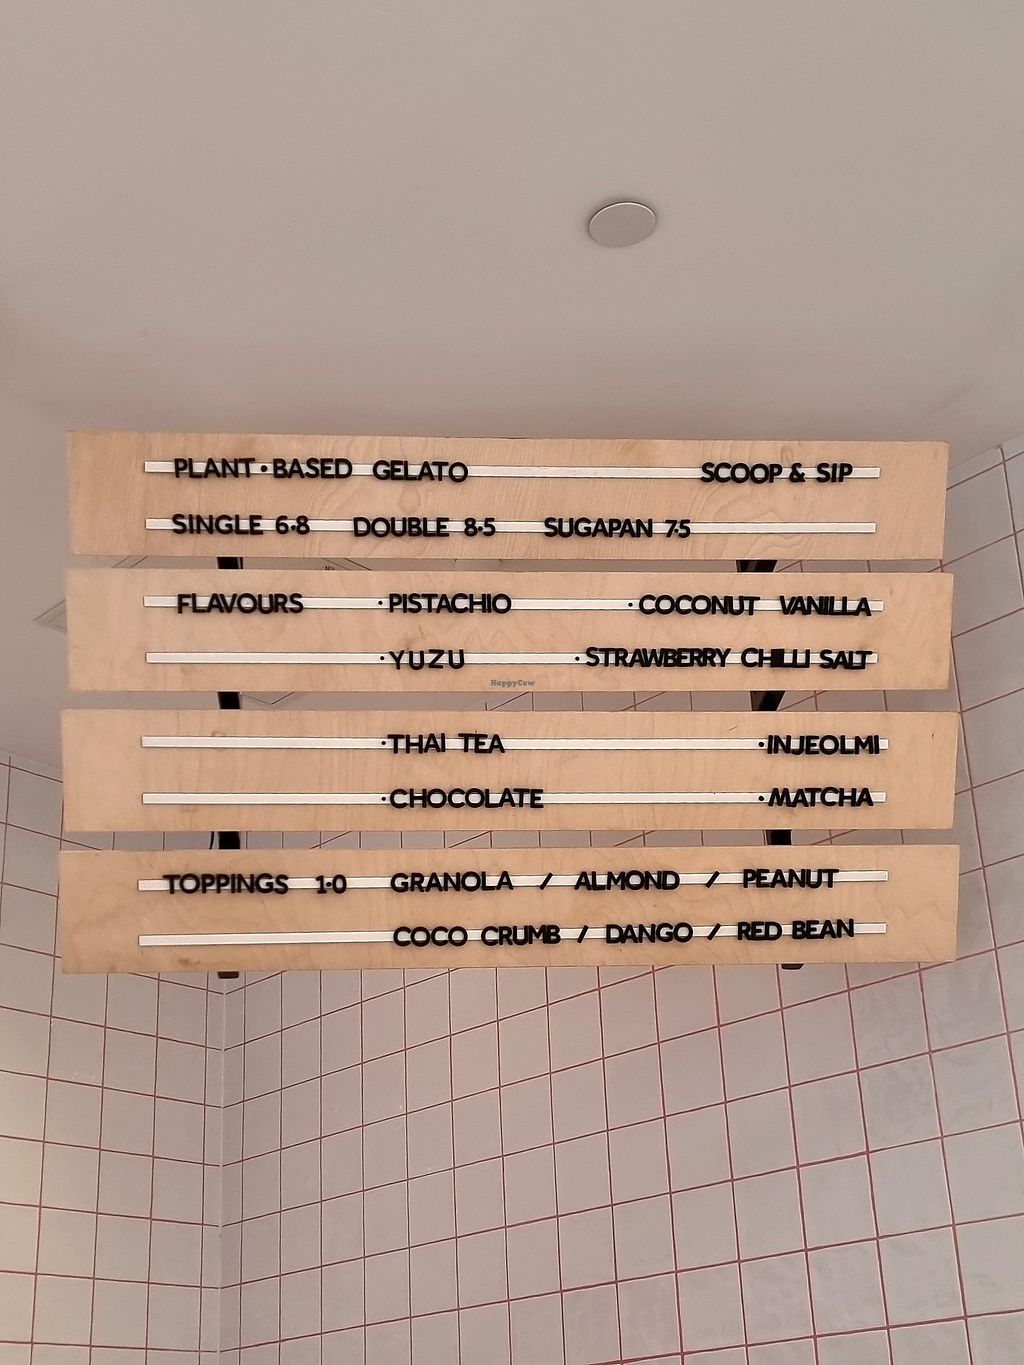 PLANT·BASED GELATO SCOOP & SIP
SINGLE 6·8 DOUBLE 8·5 SUGAPAN 7·5
FLAVOURS ·PISTACHIO ·COCONUT VANILLA
·YUZU ·STRAWBERRY CHILLI SALT
HappyCow
·THAI TEA ·INJEOLMI
·CHOCOLATE ·MATCHA
TOPPINGS 1·0 GRANOLA / ALMOND / PEANUT
COCO CRUMB / DANGO / RED BEAN